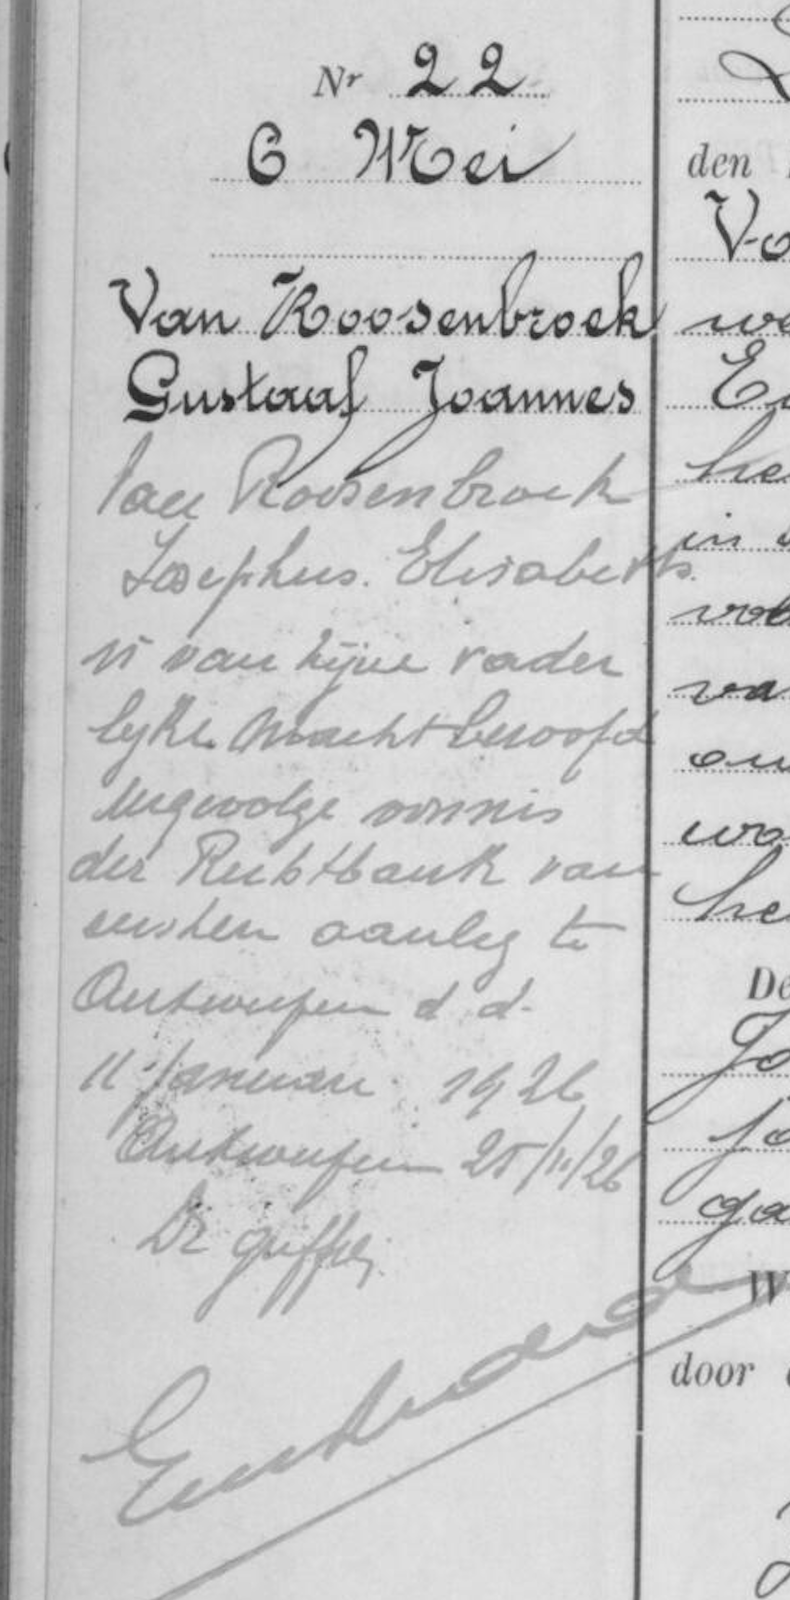 Nr 22
6 Mei
Van Roosenbroek
Gustaaf Joannes
Van Roosenbroek
Josephus. Elisabeth
is van zijne vader
lijke macht beroofd
ingevolge vonnis
der Rechtbank van
eersten aanleg te
Antwerpen d. d.
11 januari 1926
Antwerpen 25/11/26
De griffier
den
in
door